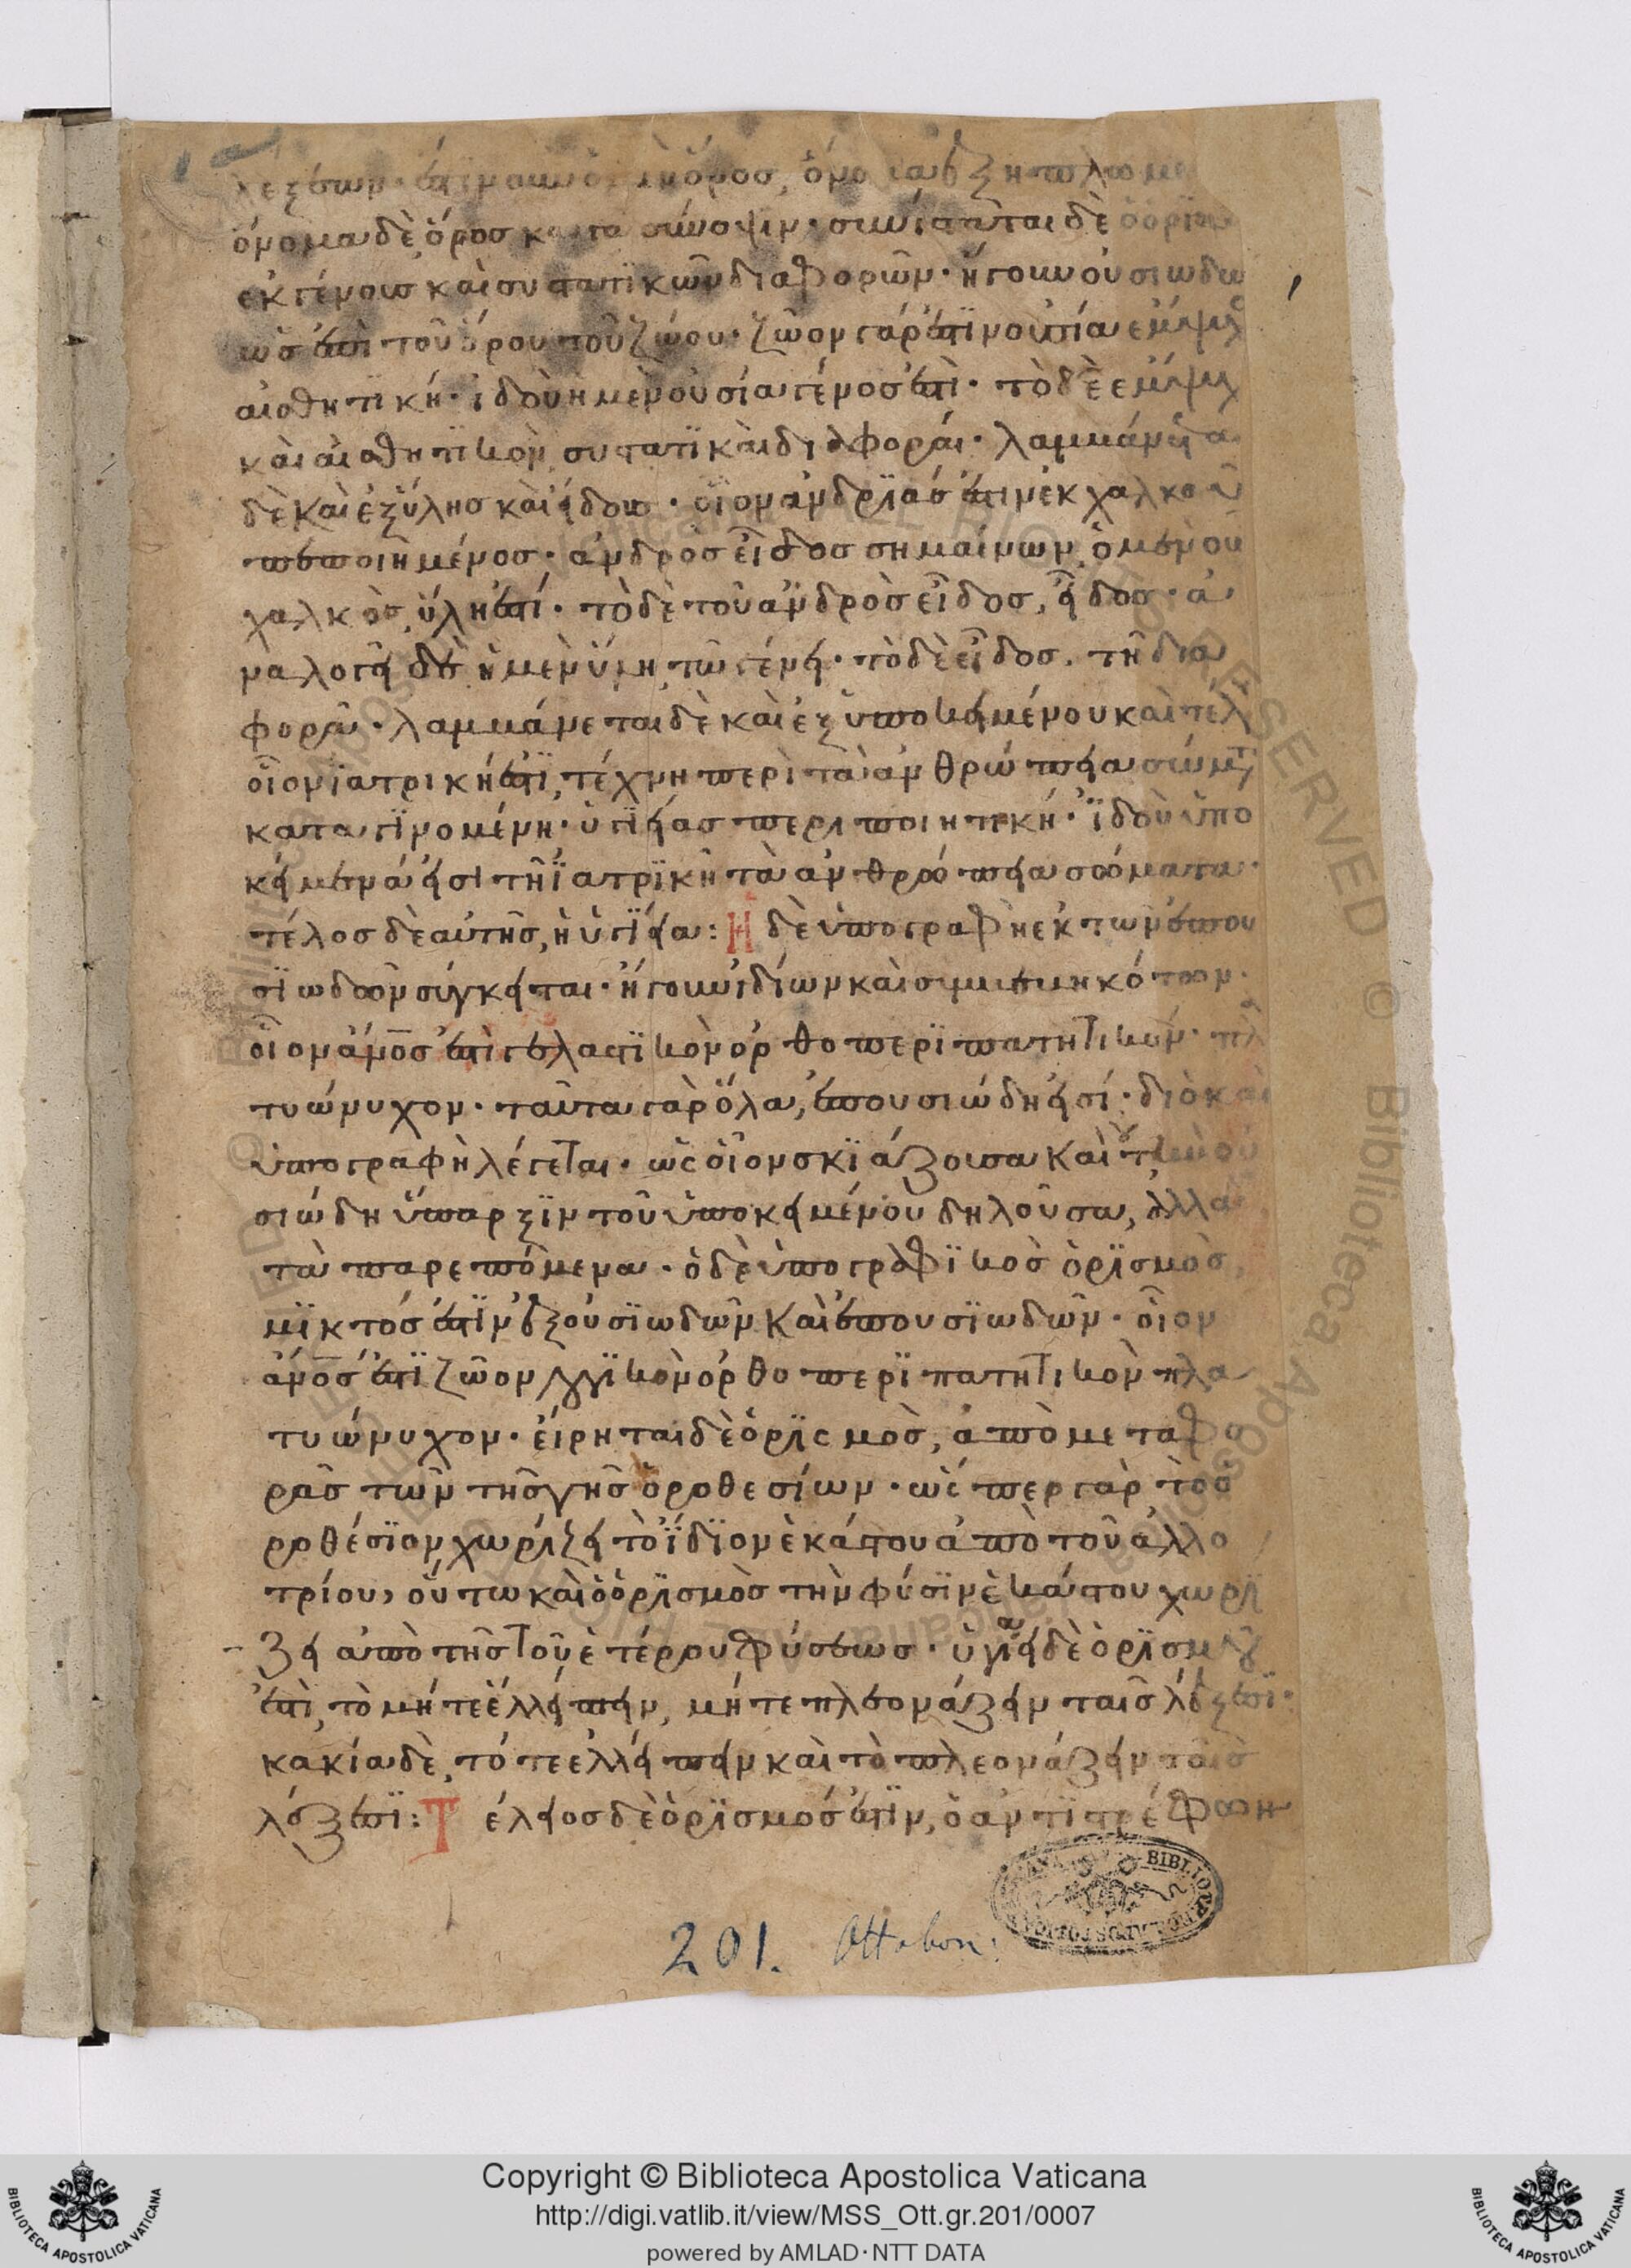 λέξεων· ὄρος, ὄνομα
ὄνομα δὲ ὅρος κατα σύνοψιν· συνίσταται δὲ ὁ ὁρισ
ἐκ γένους καὶ συστατϊκῶν διαφορῶν· ἤγουν οὐσιωδω
ὡς ἐπὶ τοῦ ὅρου τοῦ ζώου· ζῶον γάρ ἐστϊν οὐσία ἔμψυχ
αἰσθητϊκή· ἰδοὺ ἡ μὲν οὐσία γένος ἐστὶ· τὸ δὲ ἔμψυχ
καὶ αἰσθητϊκὸν, συστατϊκαὶ διαφοραί· λαμβάνεται
δὲ καὶ ἐξ ὕλης καὶ εἴδους· οἷον ἀνδρϊάς ἐστιν ἐκ χαλκοῦ
πεποιημένος· ἀνδρὸς εἶδος σημαίνων, ὁ μὲν οὖ
χαλκὸς, ὕλη ἐστί· τὸ δὲ τοῦ ἀνδρὸς εἶδος, εἶδος· ἀ
ναλογεῖ δὲ ἡ μὲν ὕλη, τῶ γένει· τὸ δὲ εἶδος, τῆ δια
φορᾶ· λαμβάνεται δὲ καὶ ἐξ ὑποκειμένου καὶ τέλ
οἷον ἰατρικὴ ἐστϊ, τέχνη περὶ τὰ ἀνθρώπεια σώματ
καταγϊνομένη· ὑγϊείας περιποιητϊκή· ἰδοὺ ὑπο
κείμενά εἰσι τῆ ἰατρϊκῆ τὰ ἀνθρώπεια σώματα·
τέλος δὲ αὐτῆς, ἡ ὑγϊεία: Ἡ δὲ ὑπογραφὴ ἐκ τῶν ἐπου
σϊωδῶν σύγκειται· ἤγουν ἰδίων καὶ συμβεβηκότων·
οἷον ἄνος ἐστὶ γελαστϊκὸν ὀρθοπερϊπατητικὸν· πλα
τυώνυχον· ταῦτα γὰρ ὅλα, ἐπουσιώδη εἰσί· διὸ καὶ
ὑπογραφὴ λέγεται· ὡς οἷον σκϊάζουσα καὶ οὐ τὴν οὐ
σιώδη ὕπαρξϊν τοῦ ὑποκειμένου δηλοῦσα, ἀλλὰ
τὰ παρεπόμενα· ὁ δὲ ὑπογραφϊκὸς ὁρϊσμὸς,
μϊκτός ἐστϊν ἐξ οὐσϊωδῶν καὶ ἐπουσϊωδῶν· οἷον
ἄνος ἐστϊ ζῶον λογϊκὸν ὀρθοπερϊπατητικὸν πλα
τυώνυχον· εἴρηται δὲ ὁρϊσμὸς, ἀπὸ μεταφο
ρᾶς τῶν τῆς γῆς ὁροθεσίων· ὥσπερ γὰρ τὸ ὁ
ροθέσϊον χωρίζει τὸ ἴδϊον ἑκάστου ἀπὸ τοῦ ἀλλο
τρίου, οὕτω καὶ ὁ ὁρϊσμὸς τὴν φύσϊν ἑκάστου χωρϊ
ζει ἀπὸ τῆς τοῦ ἑτέρου φύσεως· ὑγϊεία δὲ ὁρϊσμοῦ
ἐστὶ, τὸ μήτε ἐλλείπειν, μήτε πλεονάζειν ταῖς λέξεσϊ·
κακία δὲ, τό τε ἐλλείπειν καὶ τὸ πλεονάζειν ταῖς
λέξεσϊ: Τέλειος δὲ ὁρϊσμός ἐστϊν, ὁ ἀντϊστρέφων
201. Ottobon:
Copyright © Biblioteca Apostolica Vaticana
http://digi.vatlib.it/view/MSS_Ott.gr.201/0007
powered by AMLAD·NTT DATA